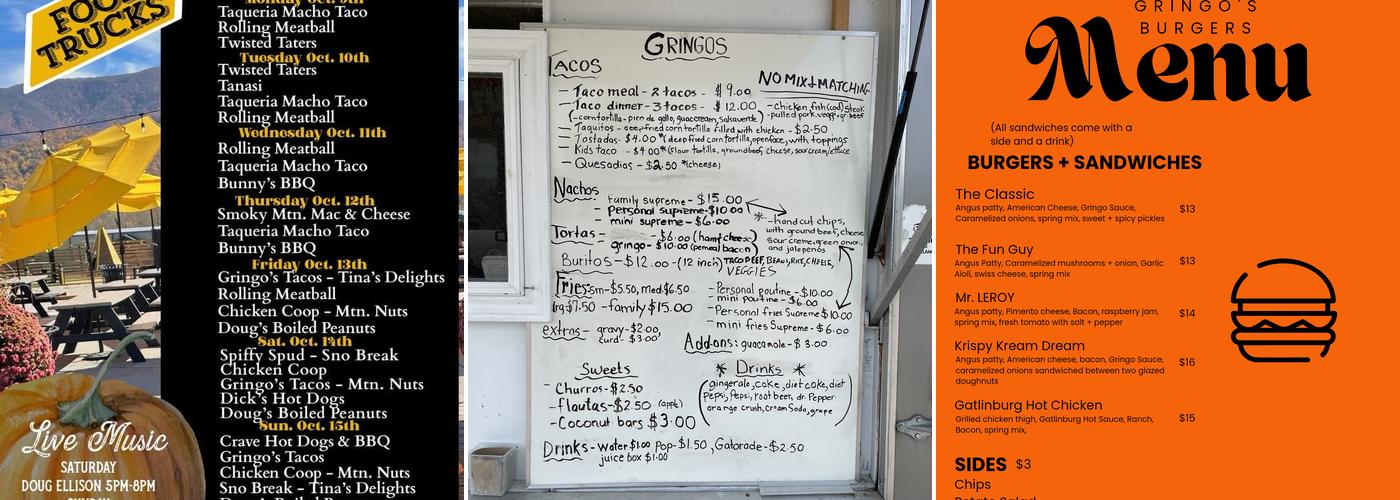 FOOD
TRUCKS
Monday Oct. 9th
Taqueria Macho Taco
Rolling Meatball
Twisted Taters
Tuesday Oct. 10th
Twisted Taters
Tanasi
Taqueria Macho Taco
Rolling Meatball
Wednesday Oct. 11th
Rolling Meatball
Taqueria Macho Taco
Bunny's BBQ
Thursday Oct. 12th
Smoky Mtn. Mac & Cheese
Taqueria Macho Taco
Bunny's BBQ
Friday Oct. 13th
Gringo's Tacos - Tina's Delights
Rolling Meatball
Chicken Coop - Mtn. Nuts
Doug's Boiled Peanuts
Sat. Oct. 14th
Spiffy Spud - Sno Break
Chicken Coop
Gringo's Tacos - Mtn. Nuts
Dick's Hot Dogs
Doug's Boiled Peanuts
Sun. Oct. 15th
Crave Hot Dogs & BBQ
Gringo's Tacos
Chicken Coop - Mtn. Nuts
Sno Break - Tina's Delights
Live Music
SATURDAY
DOUG ELLISON 5PM-8PM
GRINGOS
TACOS
NO MIX + MATCHING
- Taco meal - 2 tacos - $9.00
- Taco dinner - 3 tacos - $12.00
- chicken, fish (cod) steak
- pulled pork, veggi, gr. beef
(- corn tortilla - pico de gallo, guac cream, salsa verde)
- Taquitos - deep fried corn tortilla filled with chicken - $2.50
- Tostadas - $4.00 *(deep fried corn tortilla, openface, with toppings
- Kids taco - $4.00 *(flour tortilla, ground beef, cheese, sour cream/lettuce
- Quesadias - $2.50 *(cheese)
Nachos
- Family supreme - $15.00
- Personal supreme - $10.00
- mini supreme - $6.00
* - hand cut chips,
with ground beef, cheese
sour creme, green onion,
and jalepenos
Tortas - $6.00 (ham+cheese)
- gringo - $10.00 (pemeal bacon)
Buritos - $12.00 - (12 inch) TACO BEEF, BEANS, RICE, CHEESE,
VEGGIES
Fries - sm - $5.50, med. $6.50
lrg $7.50 - family $15.00
- Personal poutine - $10.00
- mini poutine - $6.00
- Personal fries Supreme $10.00
- mini fries Supreme - $6.00
extras - gravy - $2.00,
curd - $3.00
Add-ons: guacamole - $3.00
Sweets
- Churros - $2.50
- flautas - $2.50 (apple)
- Coconut bars $3.00
* Drinks *
(gingerale, coke, diet coke, diet
pepsi, Pepsi, root beer, dr. Pepper
orange crush, cream Soda, grape)
Drinks - water $1.00 Pop - $1.50, Gatorade - $2.50
juice box $1.00
GRINGO'S
BURGERS
Menu
(All sandwiches come with a
side and a drink)
BURGERS + SANDWICHES
The Classic
Angus patty, American Cheese, Gringo Sauce,
Caramelized onions, spring mix, sweet + spicy pickles
$13
The Fun Guy
Angus Patty, Caramelized mushrooms + onion, Garlic
Aioli, swiss cheese, spring mix
$13
Mr. LEROY
Angus patty, Pimento cheese, Bacon, raspberry jam,
spring mix, fresh tomato with salt + pepper
$14
Krispy Kream Dream
Angus patty, American cheese, bacon, Gringo Sauce,
caramelized onions sandwiched between two glazed
doughnuts
$16
Gatlinburg Hot Chicken
Grilled chicken thigh, Gatlinburg Hot Sauce, Ranch,
Bacon, spring mix,
$15
SIDES $3
Chips
Potato Salad